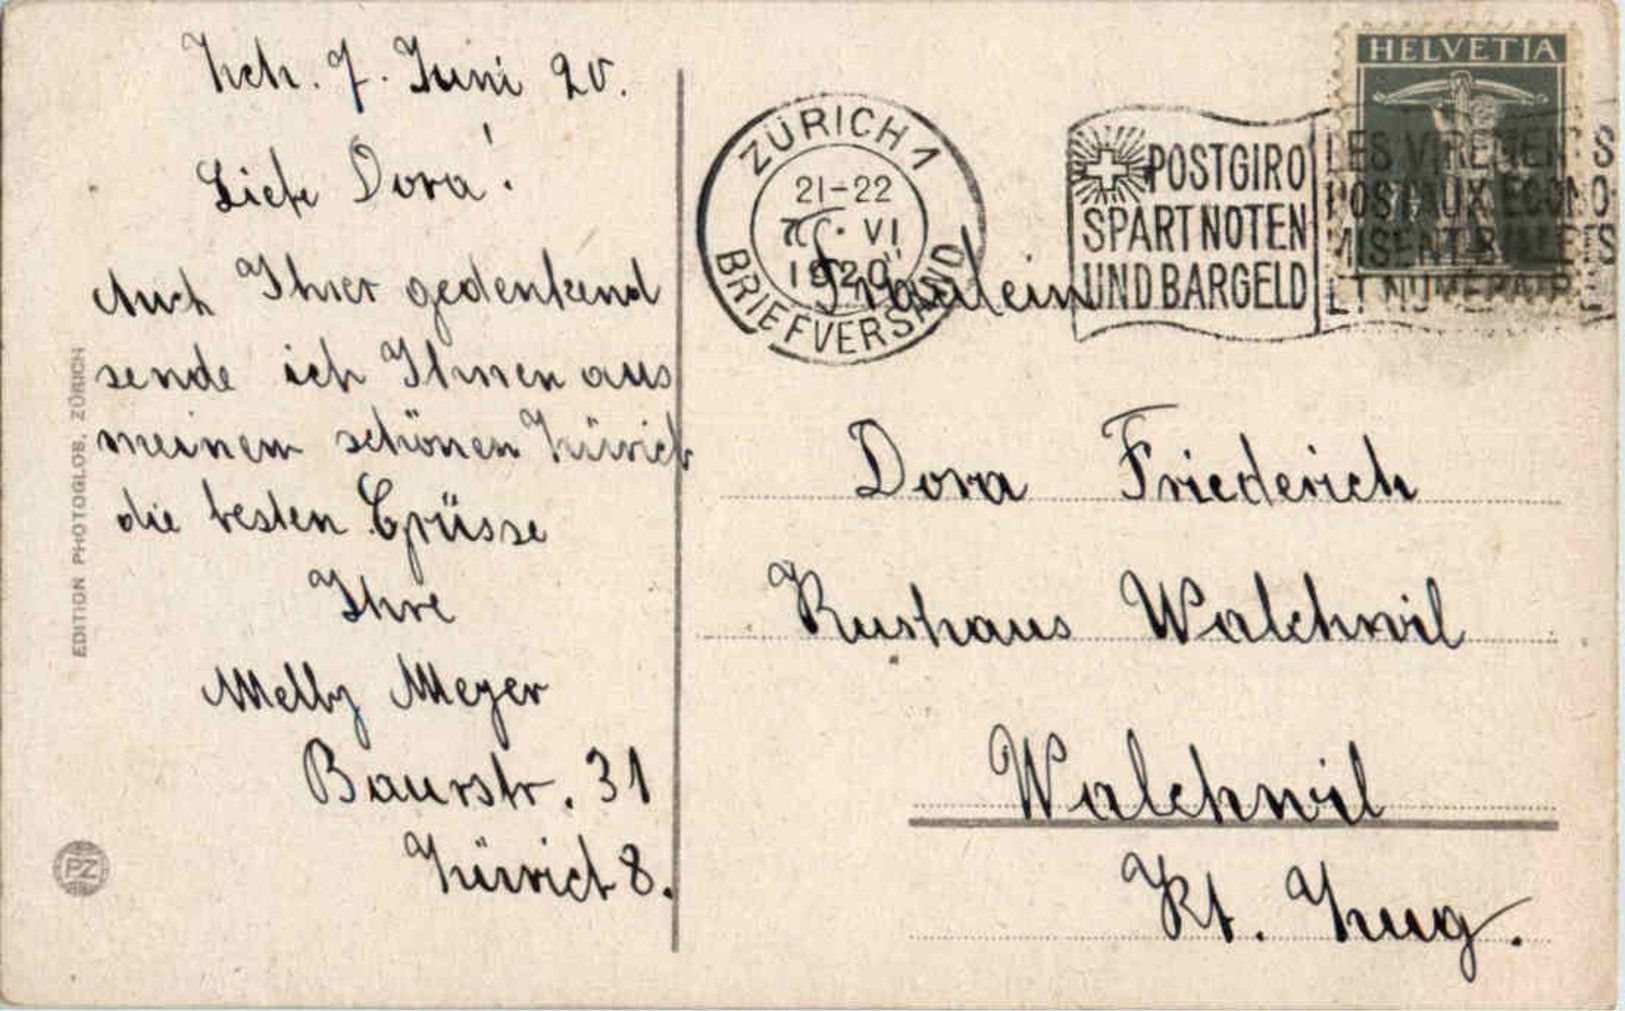 Zch. 7. Juni 20.
Liebe Dora!
Auch Ihrer gedenkend
sende ich Ihnen aus
meinem schönen Zürich
die besten Grüsse
Ihre
Melly Meyer
Baurstr. 31
Zürich 8.
EDITION PHOTOGLOB, ZÜRICH
PZ
HELVETIA
ZÜRICH 1
21-22
VI
1920
BRIEFVERSAND
POSTGIRO
SPART NOTEN
UND BARGELD
LES VIREMENTS
POSTAUX ECONO
MISENT BILLETS
ET NUMERAIRE
Fräulein
Dora Friederich
Kurhaus Walchwil
Walchwil
Kt. Zug.